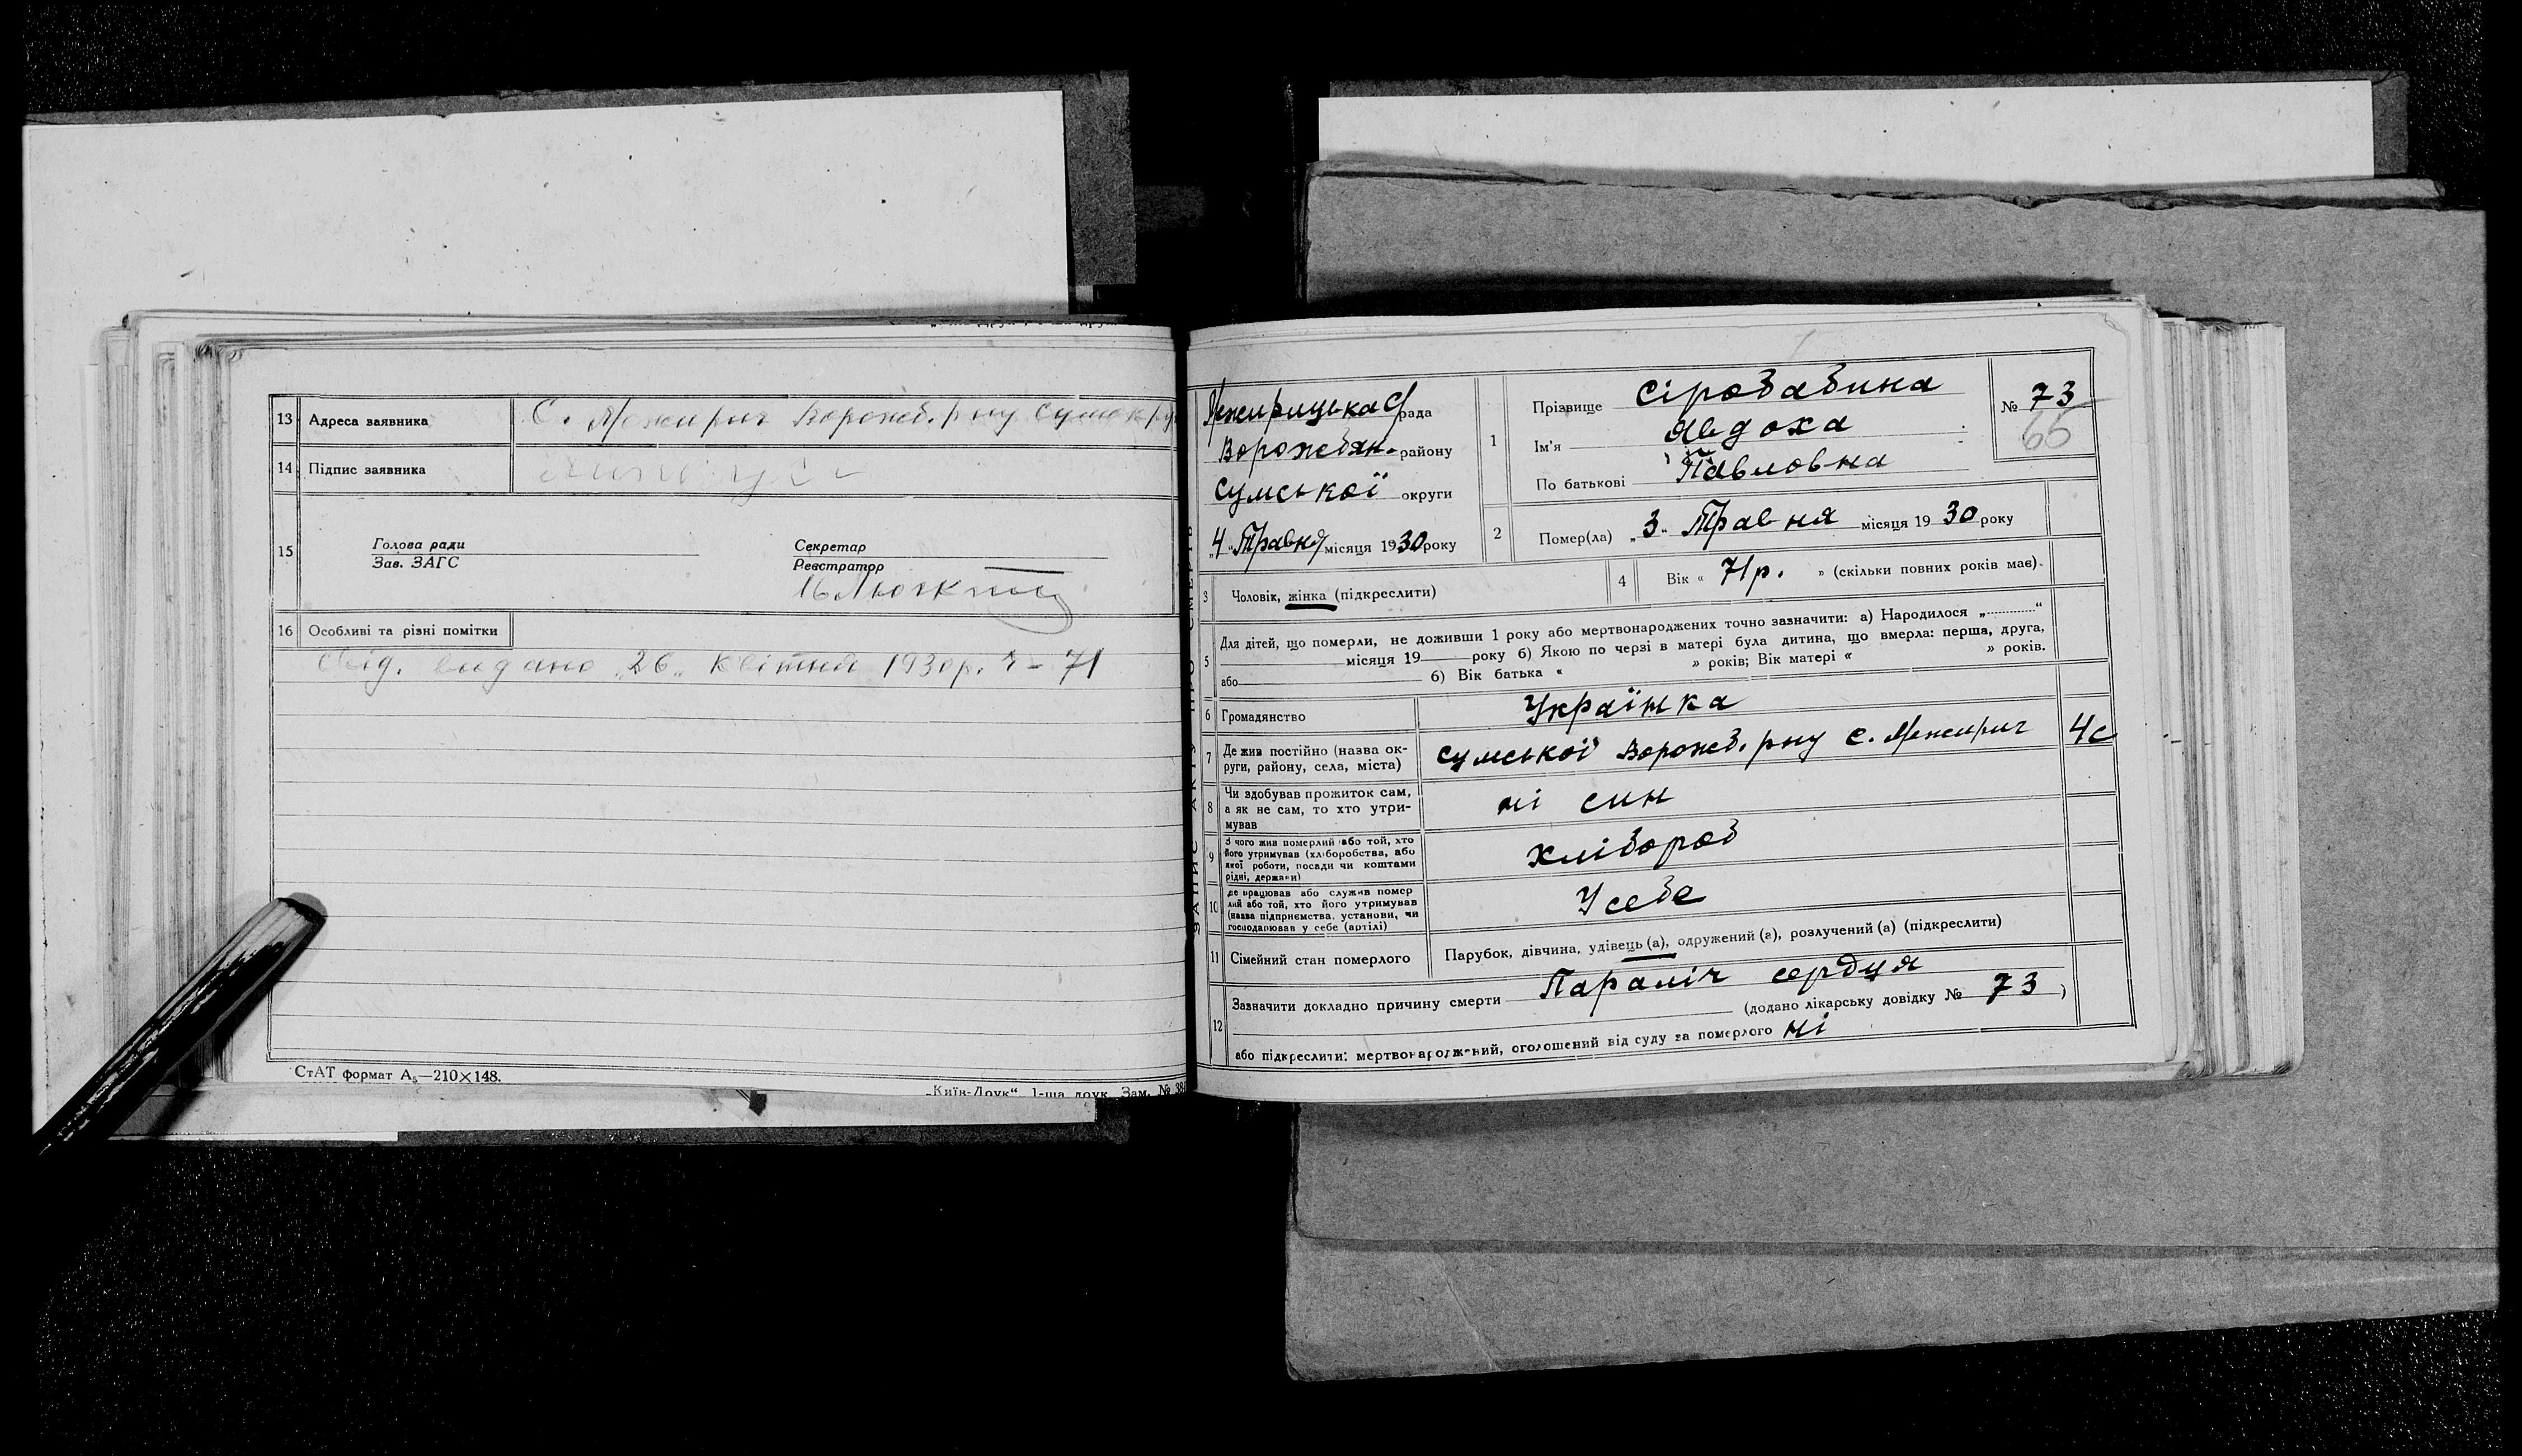 13 Адреса заявника С. Межирич Ворожб. р-ну Сумокру
14 Підпис заявника
15 Голова ради
Зав. ЗАГС
Секретар
Реєстратор
16 Особливі та різні помітки
Свід. видано „26„ квітня 1930 р. Ч – 71
СтАТ формат А5—210×148.
„Київ-Друк“, 1-ша друк. Зам. № 38
ЗАПИС АКТУ ПРО СМЕРТЬ
Межирицька с/рада
Ворожбян. району
Сумської округи
„4„ Травня місяця 1930 року
1 Прізвище Сіробабина
Ім'я Явдоха
По батькові Павловна
№ 73
66
2 Помер(ла) „3„ Травня місяця 1930 року
3 Чоловік, жінка (підкреслити)
4 Вік « 71 р. » (скільки повних років має).
5 Для дітей, що померли, не доживши 1 року або мертвонароджених точно зазначити: а) Народилося „ “
місяця 19 року б) Якою по черзі в матері була дитина, що вмерла: перша, друга,
або б) Вік батька « » років; Вік матері « » років.
6 Громадянство Українка
7 Де жив постійно (назва округи, району, села, міста) Сумської Ворожб. р-ну с. Межирич 4с
8 Чи здобував прожиток сам,
а як не сам, то хто утри-
мував ні син
9 З чого жив померлий або той, хто
його утримував (хліборобства, або
якої роботи, посади чи коштами
рідні, держави) Хлібороб
10 Де працював або служив помер
лий або той, хто його утримував
(назва підприємства, установи, чи
господарював у себе (артілі) У себе
11 Сімейний стан померлого Парубок, дівчина, удівець (а), одружений (а), розлучений (а) (підкреслити)
12 Зазначити докладно причину смерти Параліч сердця
(додано лікарську довідку № 73 )
або підкреслити: мертвонароджений, оголошений від суду за померлого ні